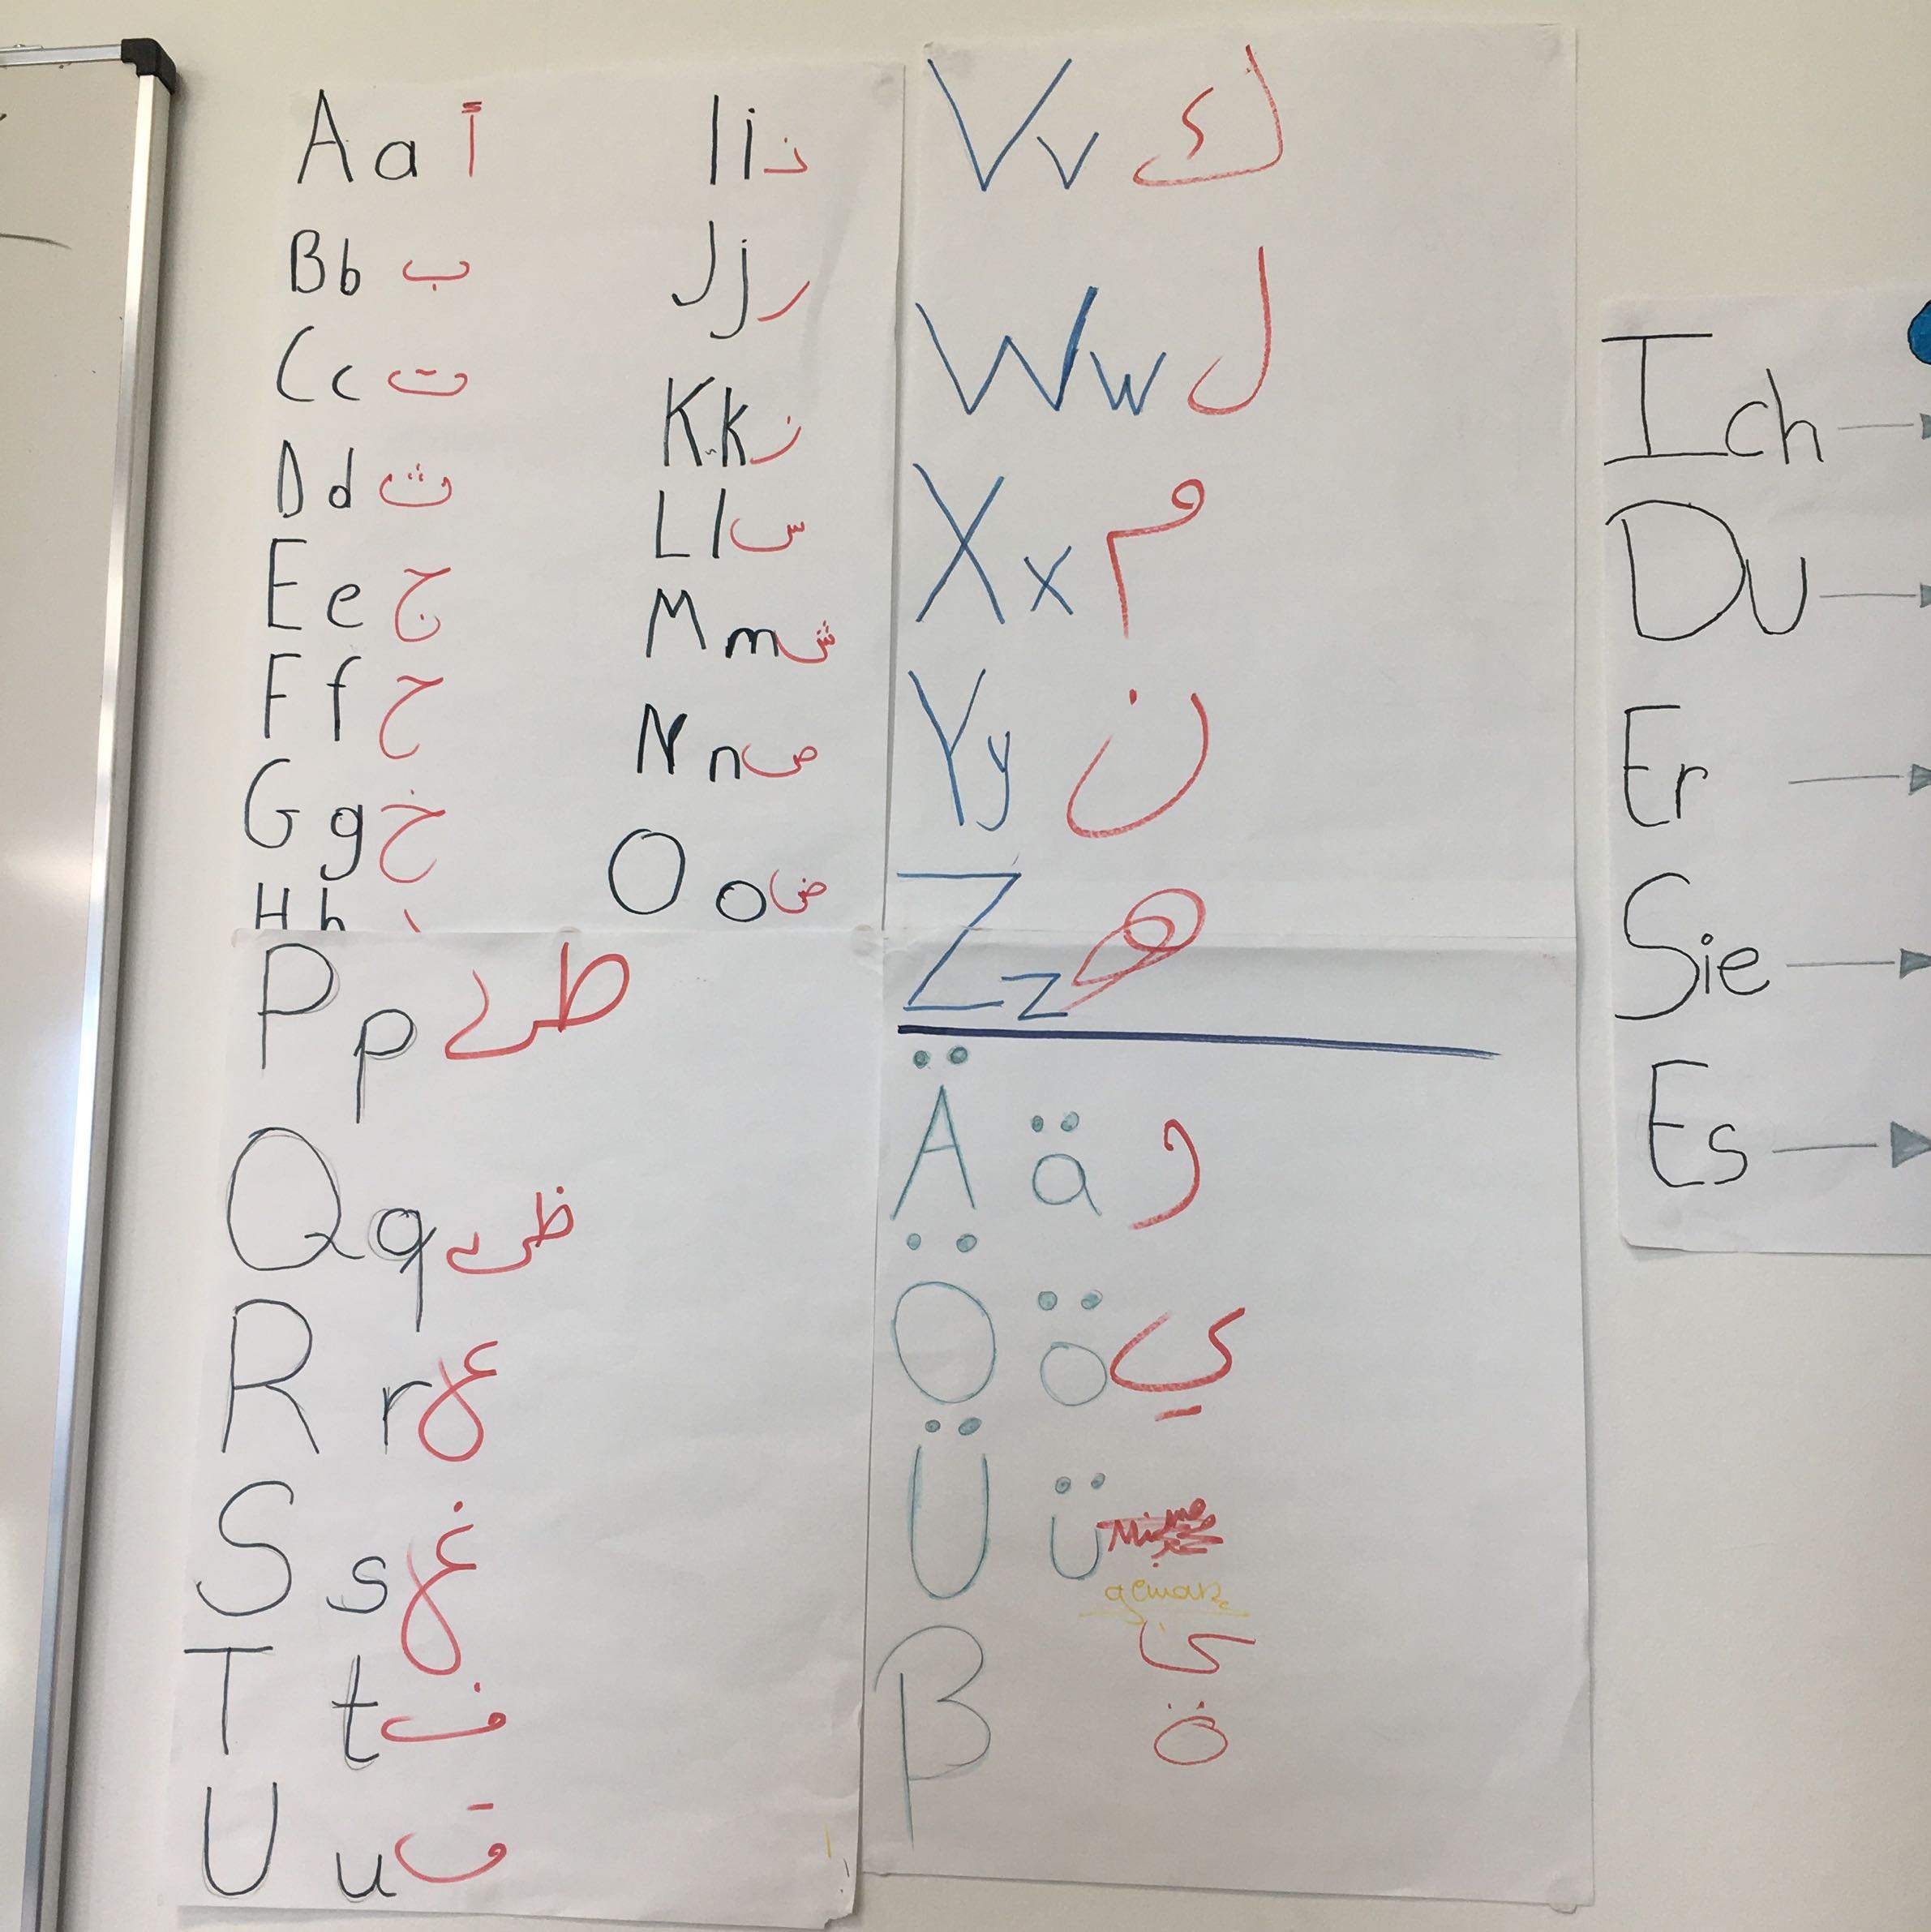 A a آ
B b ب
C c ت
D d ث
E e ج
F f ح
G g خ
H h
I i ذ
J j ر
K k ز
L l س
M m ش
N n ص
O o ض
P p ط
Q q ظ
R r ع
S s غ
T t ف
U u ق
V v ك
W w ل
X x م
Y y ن
Z z ه
Ä ä و
Ö ö ي
Ü ü
ى
ß ة
Ich
Du
Er
Sie
Es